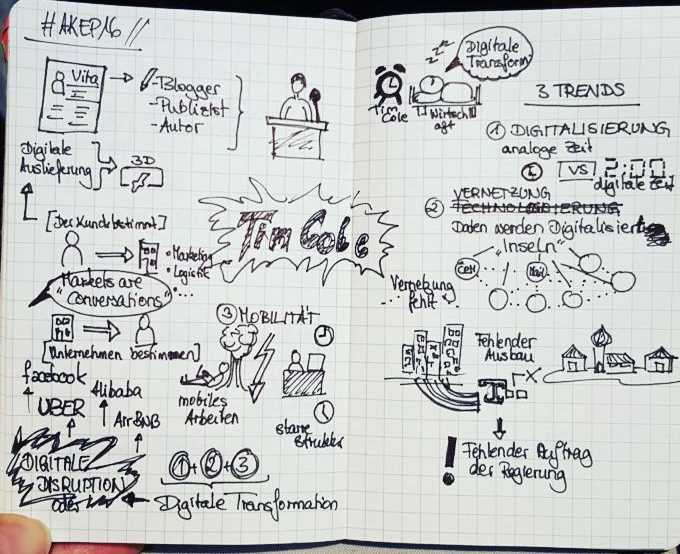 #AKEP16
Vita
- Blogger
- Publizist
- Autor
Digitale
Auslieferung
3D
[Der Kunde bestimmt]
• Marketing
• Logistik
• ...
"Markets are
Conversations"
[Unternehmen bestimmen]
facebook
Alibaba
UBER
AirBNB
DIGITALE
DISRUPTION
oder
Tim Cole
③ MOBILITÄT
mobiles
Arbeiten
starre
Struktur
①+②+③
Digitale Transformation
Digitale
Transform.
Tim
Cole
Wirtsch
aft
3 TRENDS
① DIGITALISIERUNG
analoge Zeit
VS
2:00
digitale Zeit
VERNETZUNG
② TECHNOLOGISIERUNG
Daten werden Digitalisiert
"Inseln"
CRM
Mail
Vernetzung
fehlt
Fehlender
Ausbau
T
! Fehlender Auftrag
der Regierung